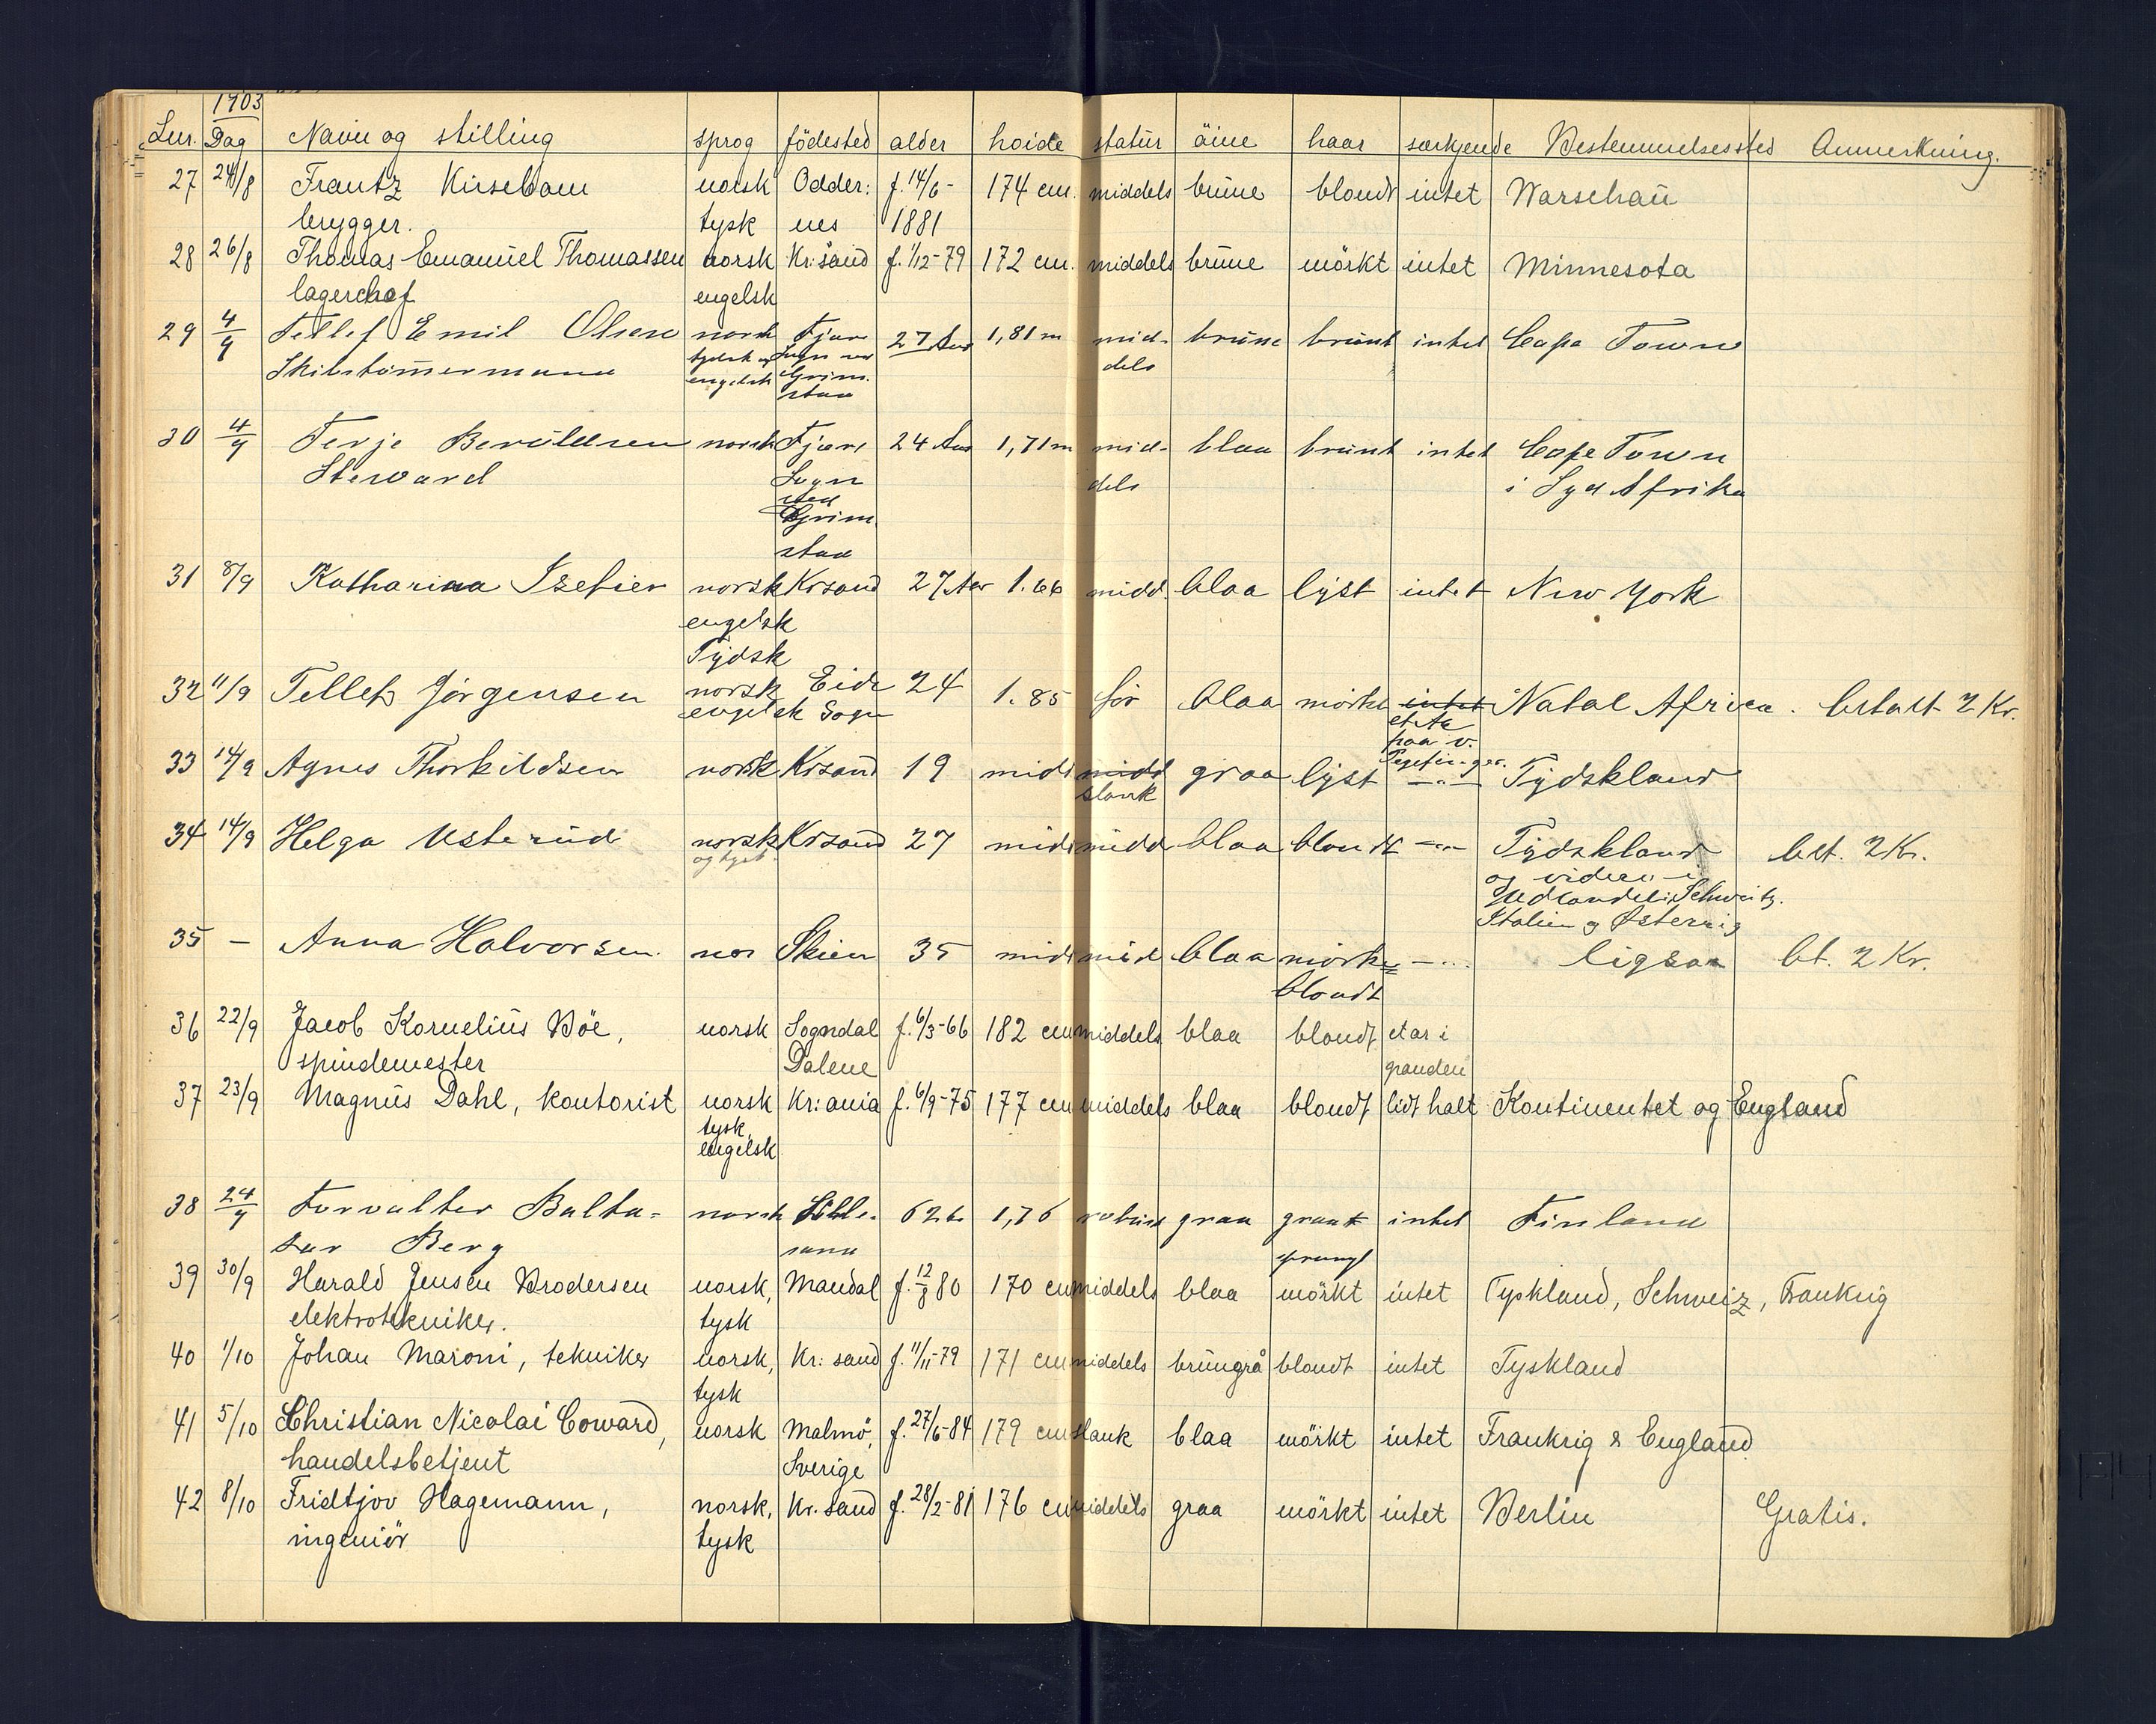 1903
Lnr. Dag Navn og stilling sprog födested alder hoide statur öine haar særkjende Bestemmelsessted Anmerkning.
27 24/8 Frantz Kirsebom norsk Odder: f. 14/6- 174 cm. middels brune blondt intet Warschau
brygger. tysk nes 1881
28 26/8 Thomas Emanuel Thomassen norsk Kr:sand f. 1/12-79 172 cm. middels brune mörkt intet Minnesota
lagerchef engelsk
29 4/9 Tellef Emil Olsen norsk Fjære 27 Aar 1,81 m mid- brune brunt intet Cape Town
Skibstømmermand tydsk og Sogn ved dels
engelsk Grim.
stad
30 4/9 Terje Beruldsen norsk Fjære 24 Aar 1,71 m mid- blaa brunt intet Cape Town
Steward Sogn dels i Syd Afrika
ved
Grim.
stad
31 8/9 Katharina norsk Krsand 27 Aar 1.66 midd. blaa lyst intet New York
engelsk
Tydsk
32 11/9 Tellef Jörgensen norsk Eide 24 1.85 för blaa mörke intet Natal Africa. betalt 2 Kr.
engelsk Sogn
paa v.
Pegefinger.
33 14/9 Agnes Thorkildsen norsk Krsand 19 midd midd graa lyst —"— Tydskland
slank
34 14/9 Helga Usterud norsk Krsand 27 midd midd blaa blondt —"— Tydskland bet. 2 Kr.
og tysk
og videre i
Udlandet: Schweitz.
Italien og Østerrig
35 — Anna Halvorsen. nor Skien 35 midd mid blaa mörke —"— ligesaa bt. 2 Kr.
blondt
36 22/9 Jacob Kornelius Böe, norsk Sogndal f. 6/3-66 182 cm middels blaa blondt et ar i
spindemester Dalene panden
37 23/9 Magnus Dahl, kontorist norsk Kr:ania f. 6/9-75 177 cm middels blaa blondt lidt halt Kontinentet og England
tysk,
engelsk
38 24/9 Forvalter Balta= norsk Lille- 62 1,76 robust graa graat intet Finland
sar Berg sand sprængt
39 30/9 Harald Jensen Brodersen norsk, Mandal f. 12/8 80 170 cm middels blaa mörkt intet Tyskland, Schweiz, Frankrig
elektrotekniker. tysk
40 1/10 Johan Maroni, tekniker norsk, Kr: sand f. 11/11-79 171 cm middels brungrå blondt intet Tyskland
tysk
41 5/10 Christian Nicolai Coward, norsk Malmö, f. 27/6-84 179 cm slank blaa mörkt intet Frankrig & England
handelsbetjent Sverige
42 8/10 Fridtjov Hagemann, norsk, Kr. sand f. 28/2-81 176 cm middels graa mörkt intet Berlin Gratis.
ingeniör tysk